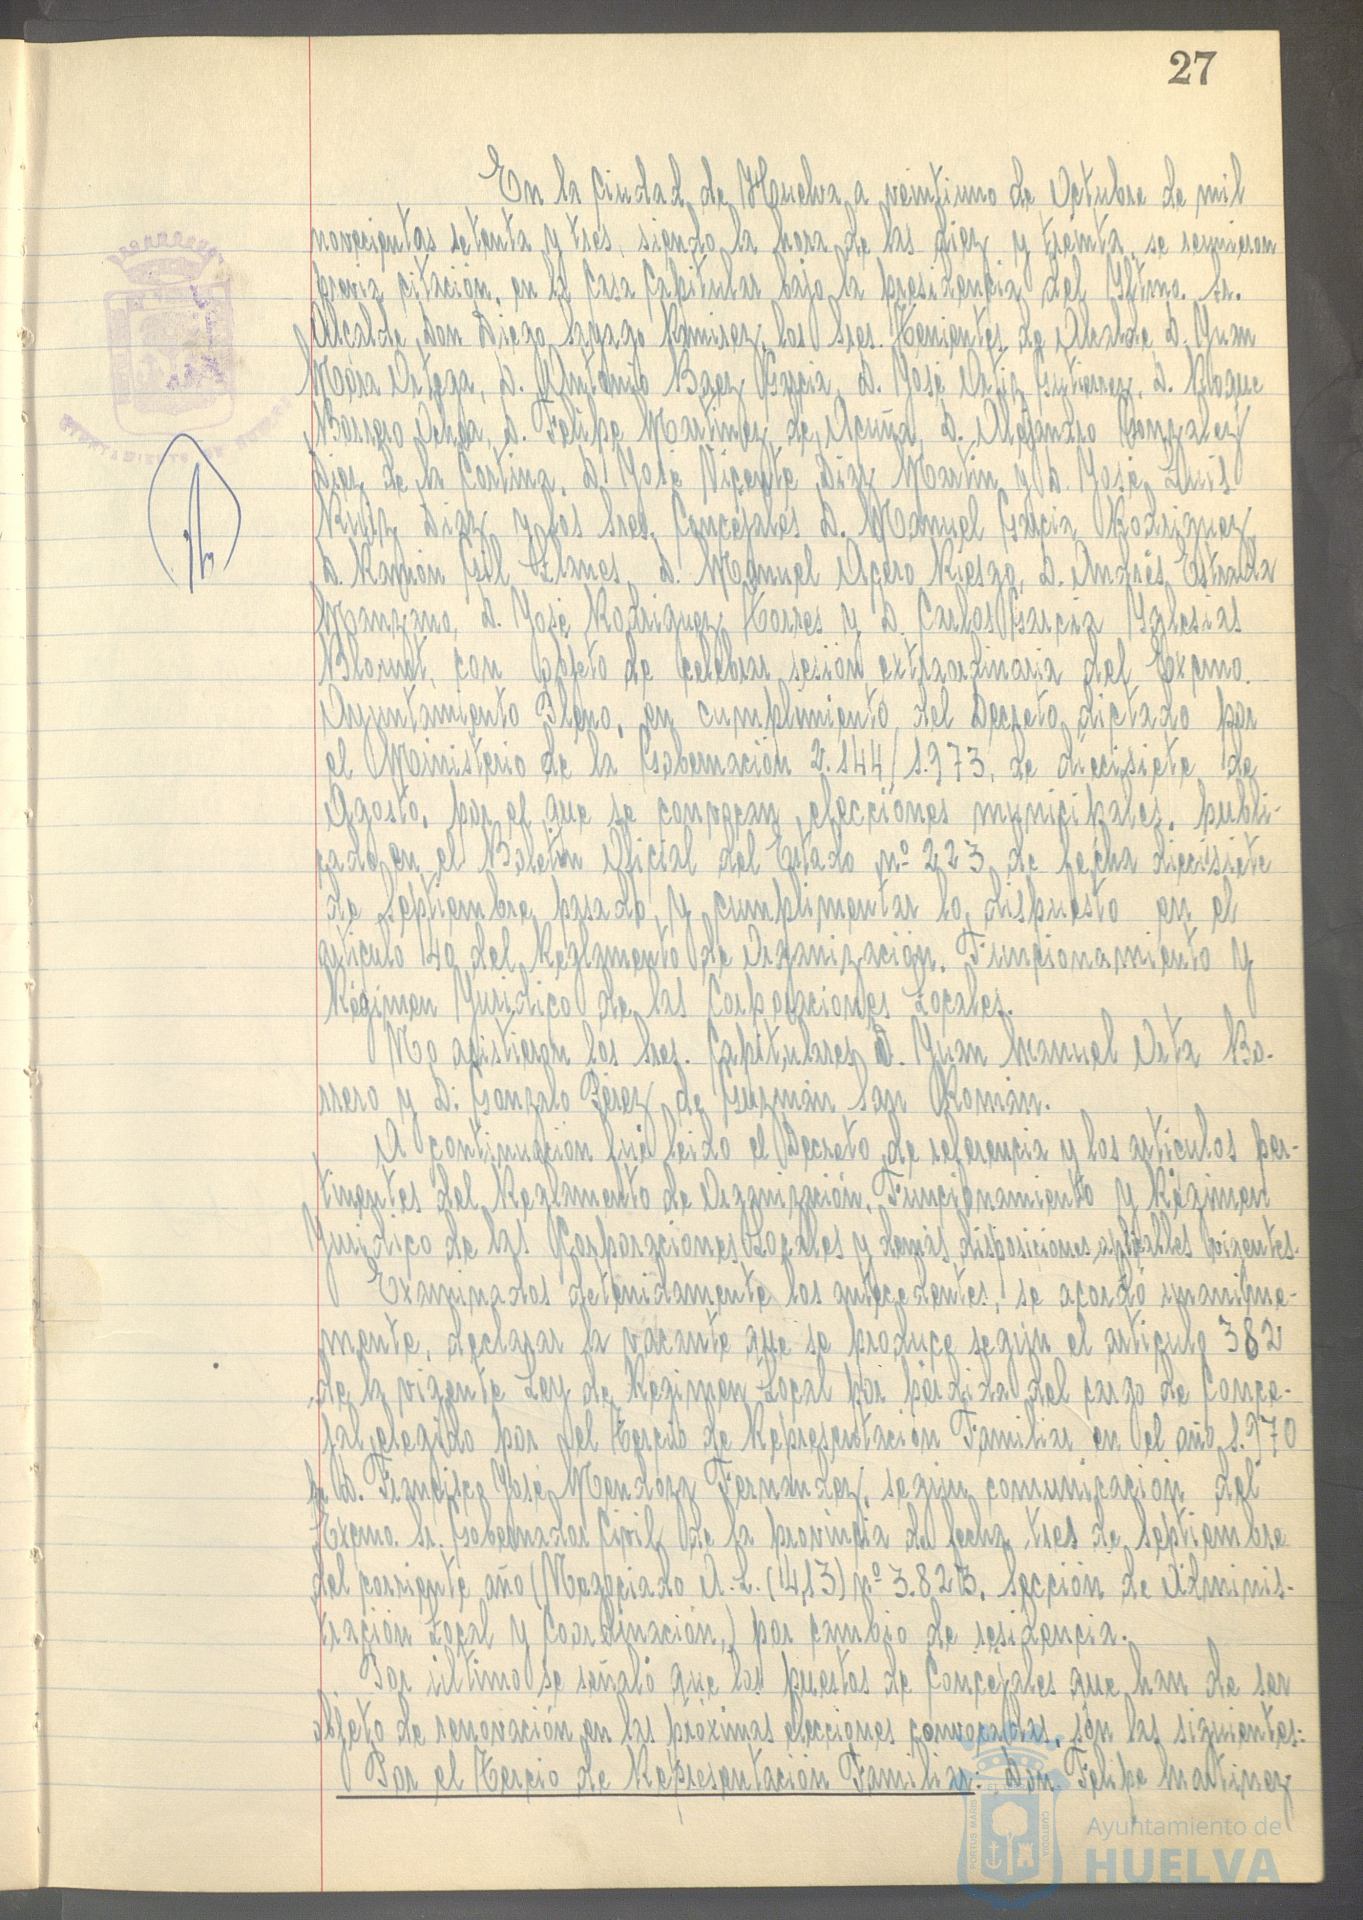 27
En la Ciudad de Huelva a veintiuno de Octubre de mil
novecientos setenta y tres, siendo la hora de las diez y treinta, se reunieron
previa citación, en la Casa Capitular bajo la presidencia del Iltmo. Sr.
Alcalde, Don Diego Sayago Ramirez, los Sres. Tenientes de Alcalde D. Juan
Mora Ortega, D. Antonio Baez Garcia, D. José Ortiz Gutierrez, D. Roque
Barrero Ochoa, D. Felipe Martinez de Acuña, D. Alejandro Gonzalez
Diez de la Cortina, D. José Vicente Diaz Martin y D. José Luis
Ruiz Diaz y los Sres. Concejales D. Manuel Garcia Rodriguez,
D. Ramón Gil Flanes, D. Manuel Acero Riesgo, D. Andrés Estrada
Manzano, D. José Rodriguez Torres y D. Carlos Garcia Yglesias
con objeto de celebrar sesión extraordinaria del Excmo.
Ayuntamiento Pleno, en cumplimiento del Decreto dictado por
el Ministerio de la Gobernación 2.144/1.973, de diecisiete de
Agosto, por el que se convocan elecciones municipales, publi-
cado en el Boletin Oficial del Estado nº 223 de fecha diecisiete
de Septiembre pasado, y cumplimentar lo dispuesto en el
articulo 40 del Reglamento de Organización, Funcionamiento y
Régimen Juridico de las Corporaciones Locales.
No asistieron los Sres. Capitulares D. Juan Manuel Orta Bo-
rrero y D. Gonzalo Pérez de Guzmán San Román.
A continuación fué leido el Decreto de referencia y los articulos per-
tinentes del Reglamento de Organización, Funcionamiento y Régimen
Juridico de las Corporaciones Locales y demás disposiciones aplicables vigentes.
Examinados detenidamente los antecedentes, se acordó unanime-
mente, declarar la vacante que se produce según el articulo 382
de la vigente Ley de Regimen Local por pérdida del cargo de Conce-
jal elegido por el Tercio de Representación Familiar en el año 1.970
de D. Francisco José Mendoza Fernandez, según comunicación del
Excmo. Sr. Gobernador Civil de la provincia de fecha tres de Septiembre
del corriente año (Negociado A.L. (4,13) nº 3.823, Sección de Adminis-
tración Local y Coordinación,) por cambio de residencia.
Por último se señaló que los puestos de Concejales que han de ser
objeto de renovación en las próximas elecciones convocadas, son las siguientes:
Por el Tercio de Representación Familiar: Don Felipe Martinez
AYUNTAMIENTO DE HUELVA
PORTUS MARIS ET TERRAE CUSTODIA
Ayuntamiento de
HUELVA